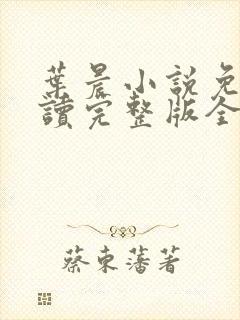 葉晨小說免
讀完整版全
蔡東藩著